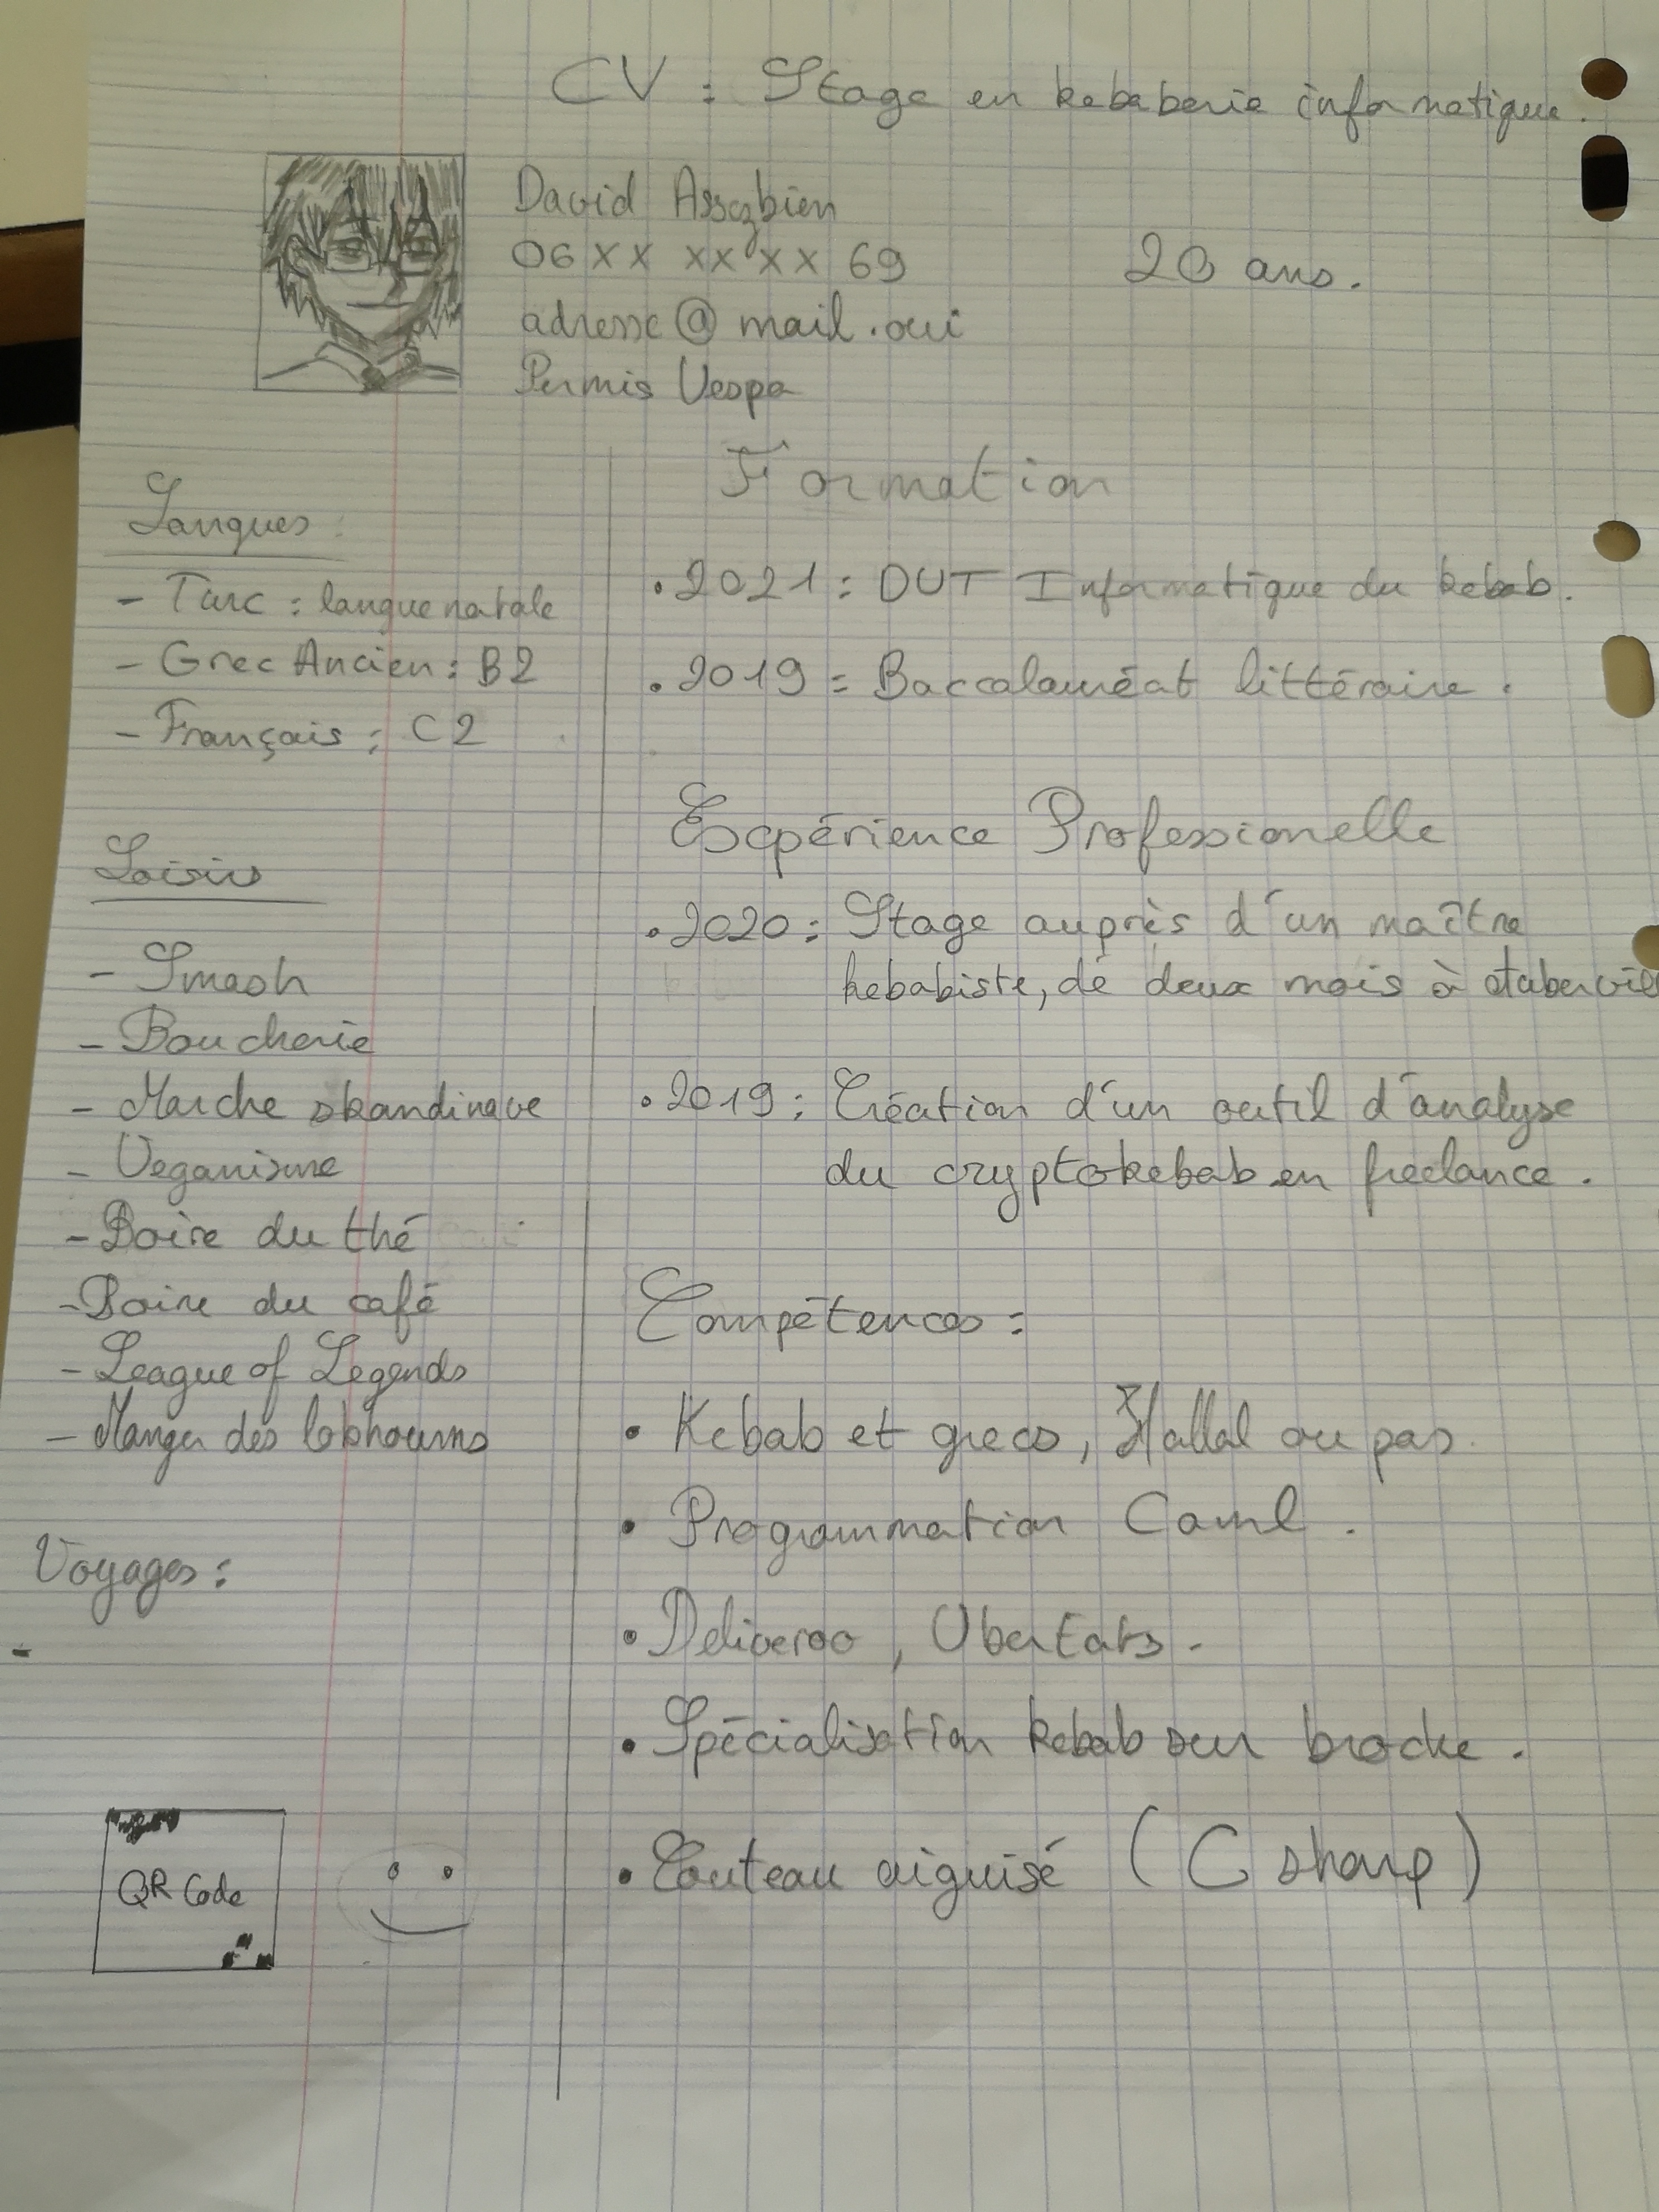 CV : Stage en kebaberie informatique.
David Assezbien
06 XX XX XX 69
20 ans.
adresse@mail.oui
Permis Vespa
Langues :
- Turc : langue natale
- Grec Ancien : B2
- Français : C2
Loisirs
- Smash
- Boucherie
- Marche skandinave
- Veganisme
- Boire du thé
- Boire du café
- League of Legends
- Manger des
Voyages :
-
QR Code
Formation
. 2021 : DUT Informatique du kebab.
. 2019 = Baccalauréat littéraire.
Expérience Professionelle
. 2020 : Stage auprès d'un maître
kebabiste, de deux mois à
. 2019 : Création d'un outil d'analyse
du cryptokebab en freelance.
Compétences :
• Kebab et grecs, Hallal ou pas.
• Programmation Caml.
• Deliveroo, UberEats.
• Spécialisation kebab sur broche.
• Couteau aiguisé (C sharp)